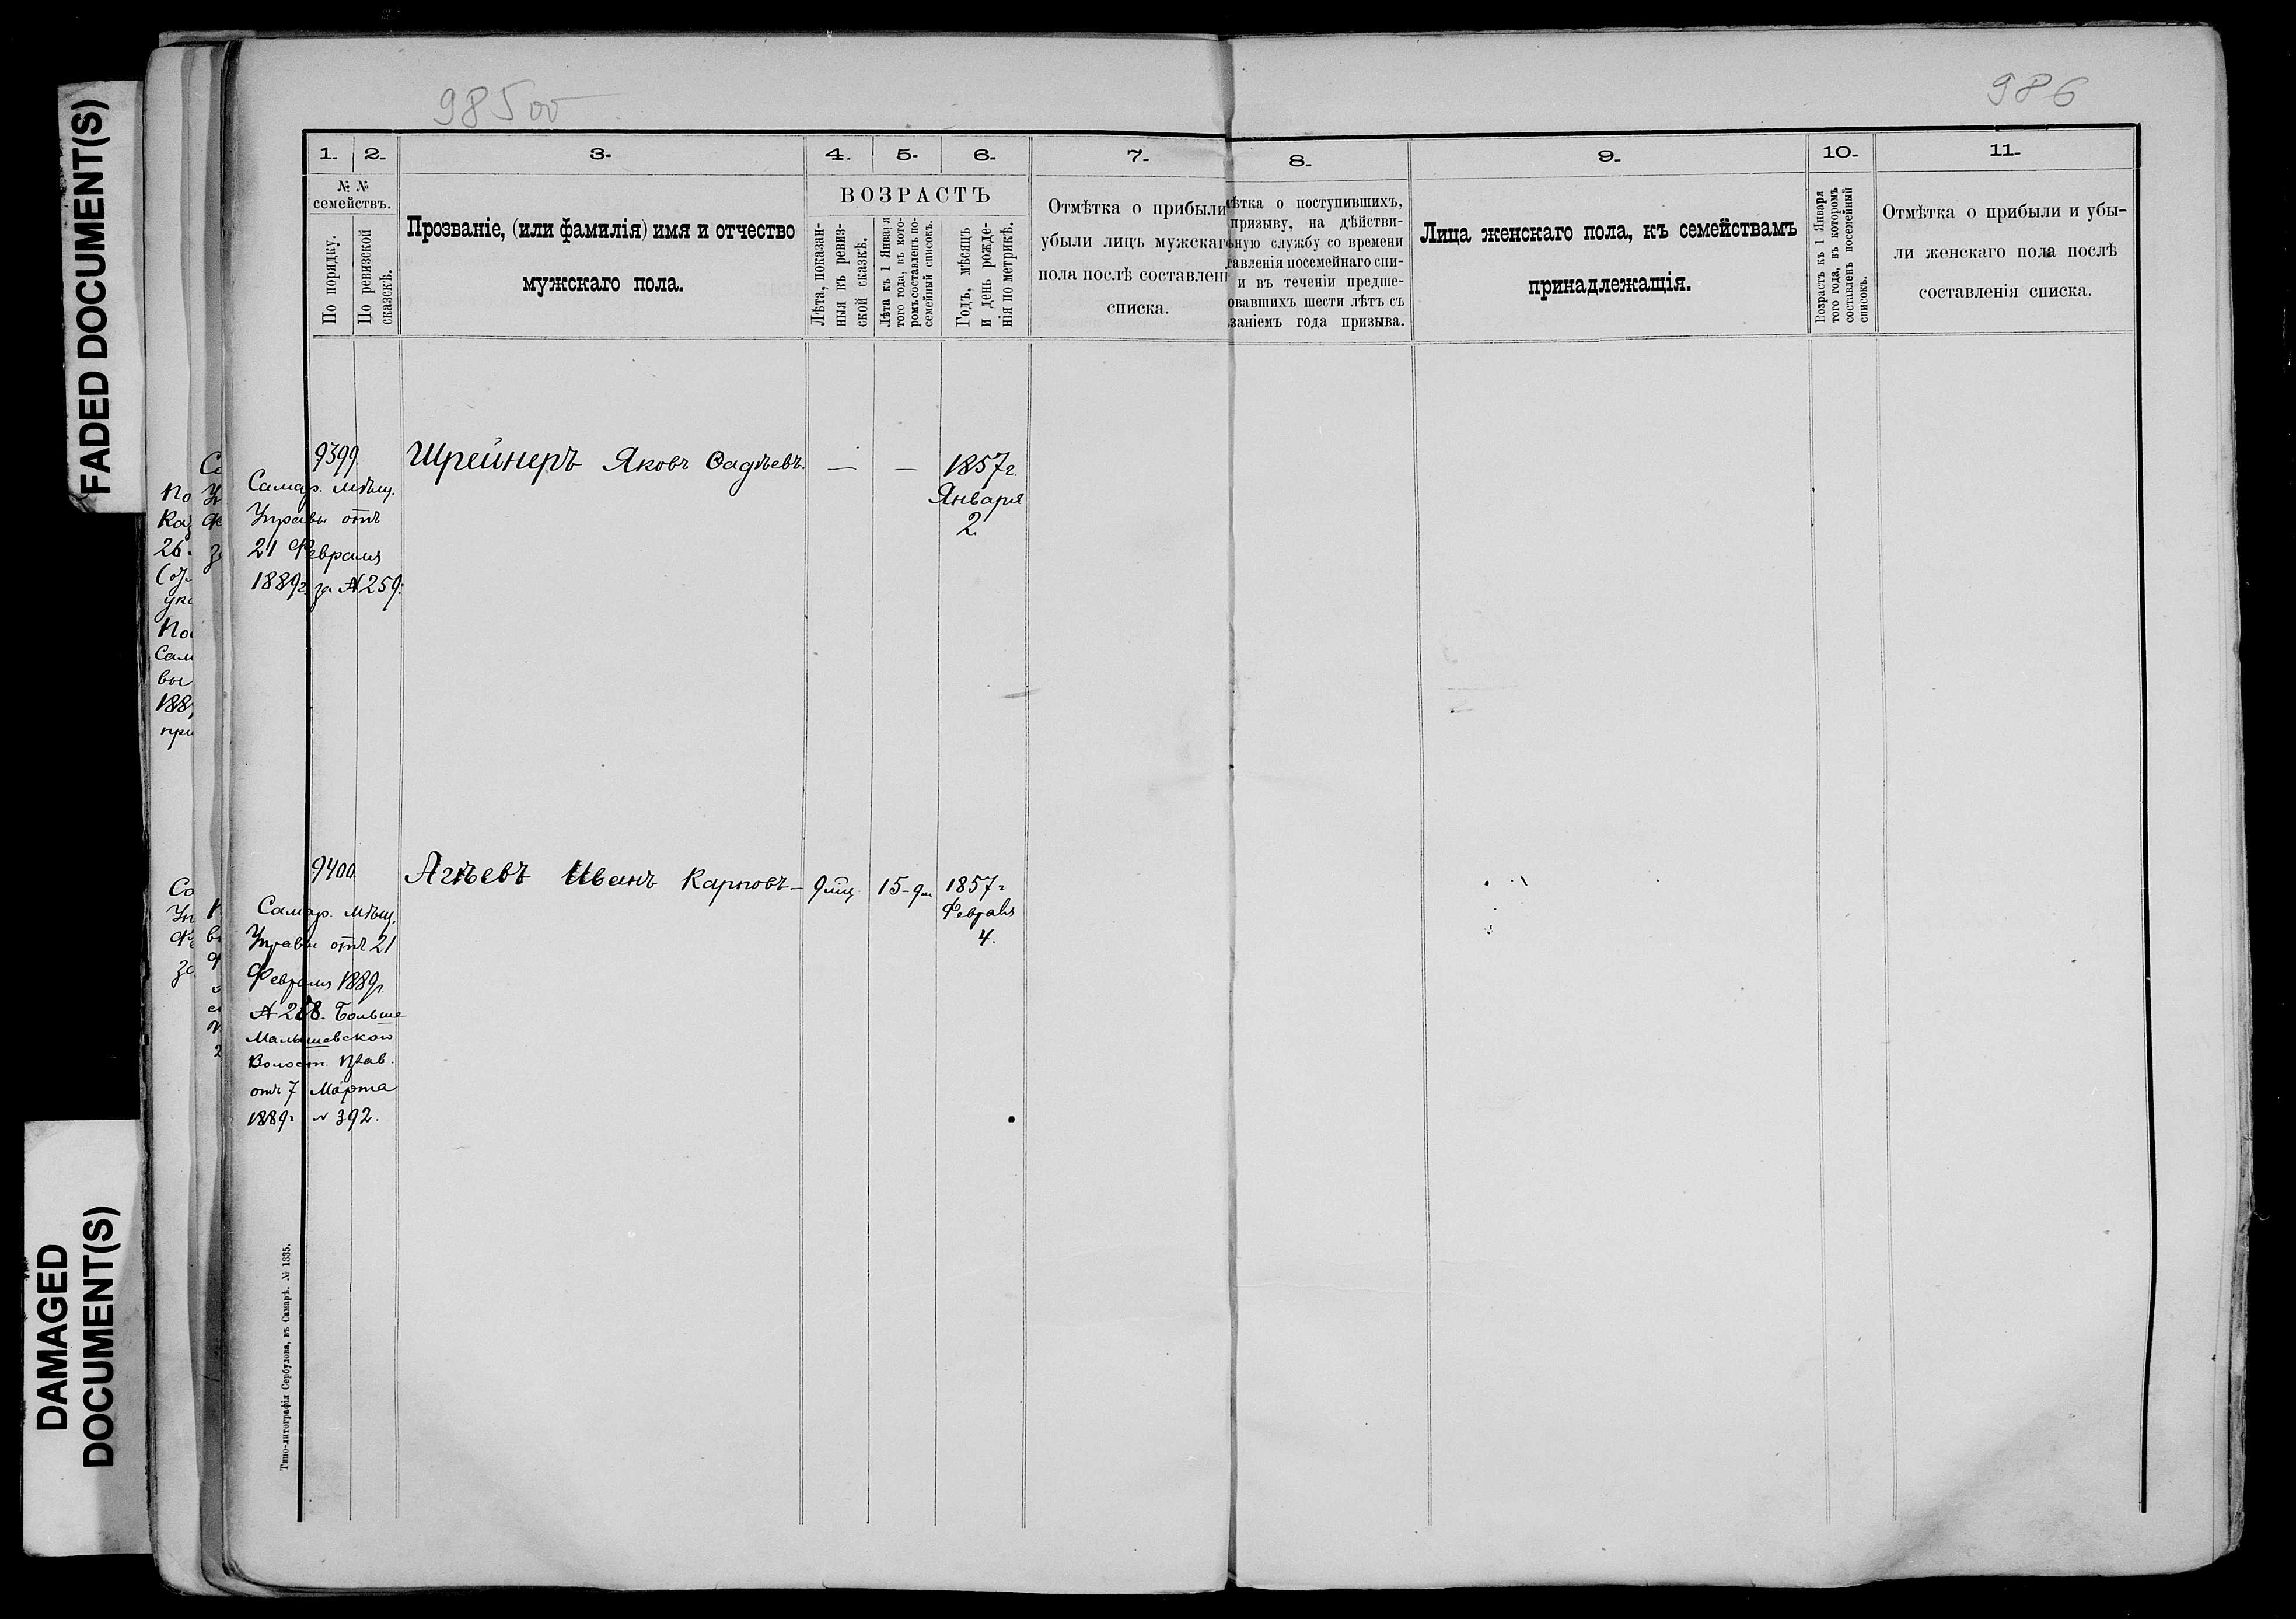 FADED DOCUMENT(S)
DAMAGED
DOCUMENT(S)
985 об
986
1. 2. 3. 4. 5. 6. 7. 8. 9. 10. 11.
№ №
семействъ.
По порядку.
По ревизской
сказскѣ.
Прозваніе, (или фамилія) имя и отчество
мужскаго пола.
ВОЗРАСТЪ
Лѣта, показан-
ныя въ ревиз-
ской сказкѣ.
Лѣта къ 1 Января
того года, въ кото-
ромъ составленъ по-
семейный списокъ.
Годъ, мѣсяцъ
и день рожде-
нія по метрикѣ.
Отмѣтка о прибыли
убыли лицъ мужскаг
пола послѣ составлен
списка.
ѣтка о поступившихъ,
призыву, на дѣйстви-
ьную службу со времени
тавленія посемейнаго спи-
и въ теченіи предше-
овавшихъ шести лѣтъ съ
заніемъ года призыва.
Лица женскаго пола, къ семействамъ
принадлежащія.
Возрастъ къ 1 Января
того года, въ которомъ
составленъ посемейный
списокъ.
Отмѣтка о прибыли и убы-
ли женскаго пола послѣ
составленія списка.
9399 Шрейнеръ Яковъ Ѳадѣевъ. — — 1857 г.
Января
2
Самар. Мѣщ.
Управы отъ
21 Февраля
1889г. за № 259.
9400 Агѣевъ Иванъ Карповъ — 15 - 1857 г
Февраля
4.
Самар. Мѣщ.
Управы отъ 21
Февраля 1889г
Больше
Малышевского
Волост. Прав.
отъ 7 Марта
1889г № 392.
Типо-литографія Сербулова, въ Самарѣ. № 1335.